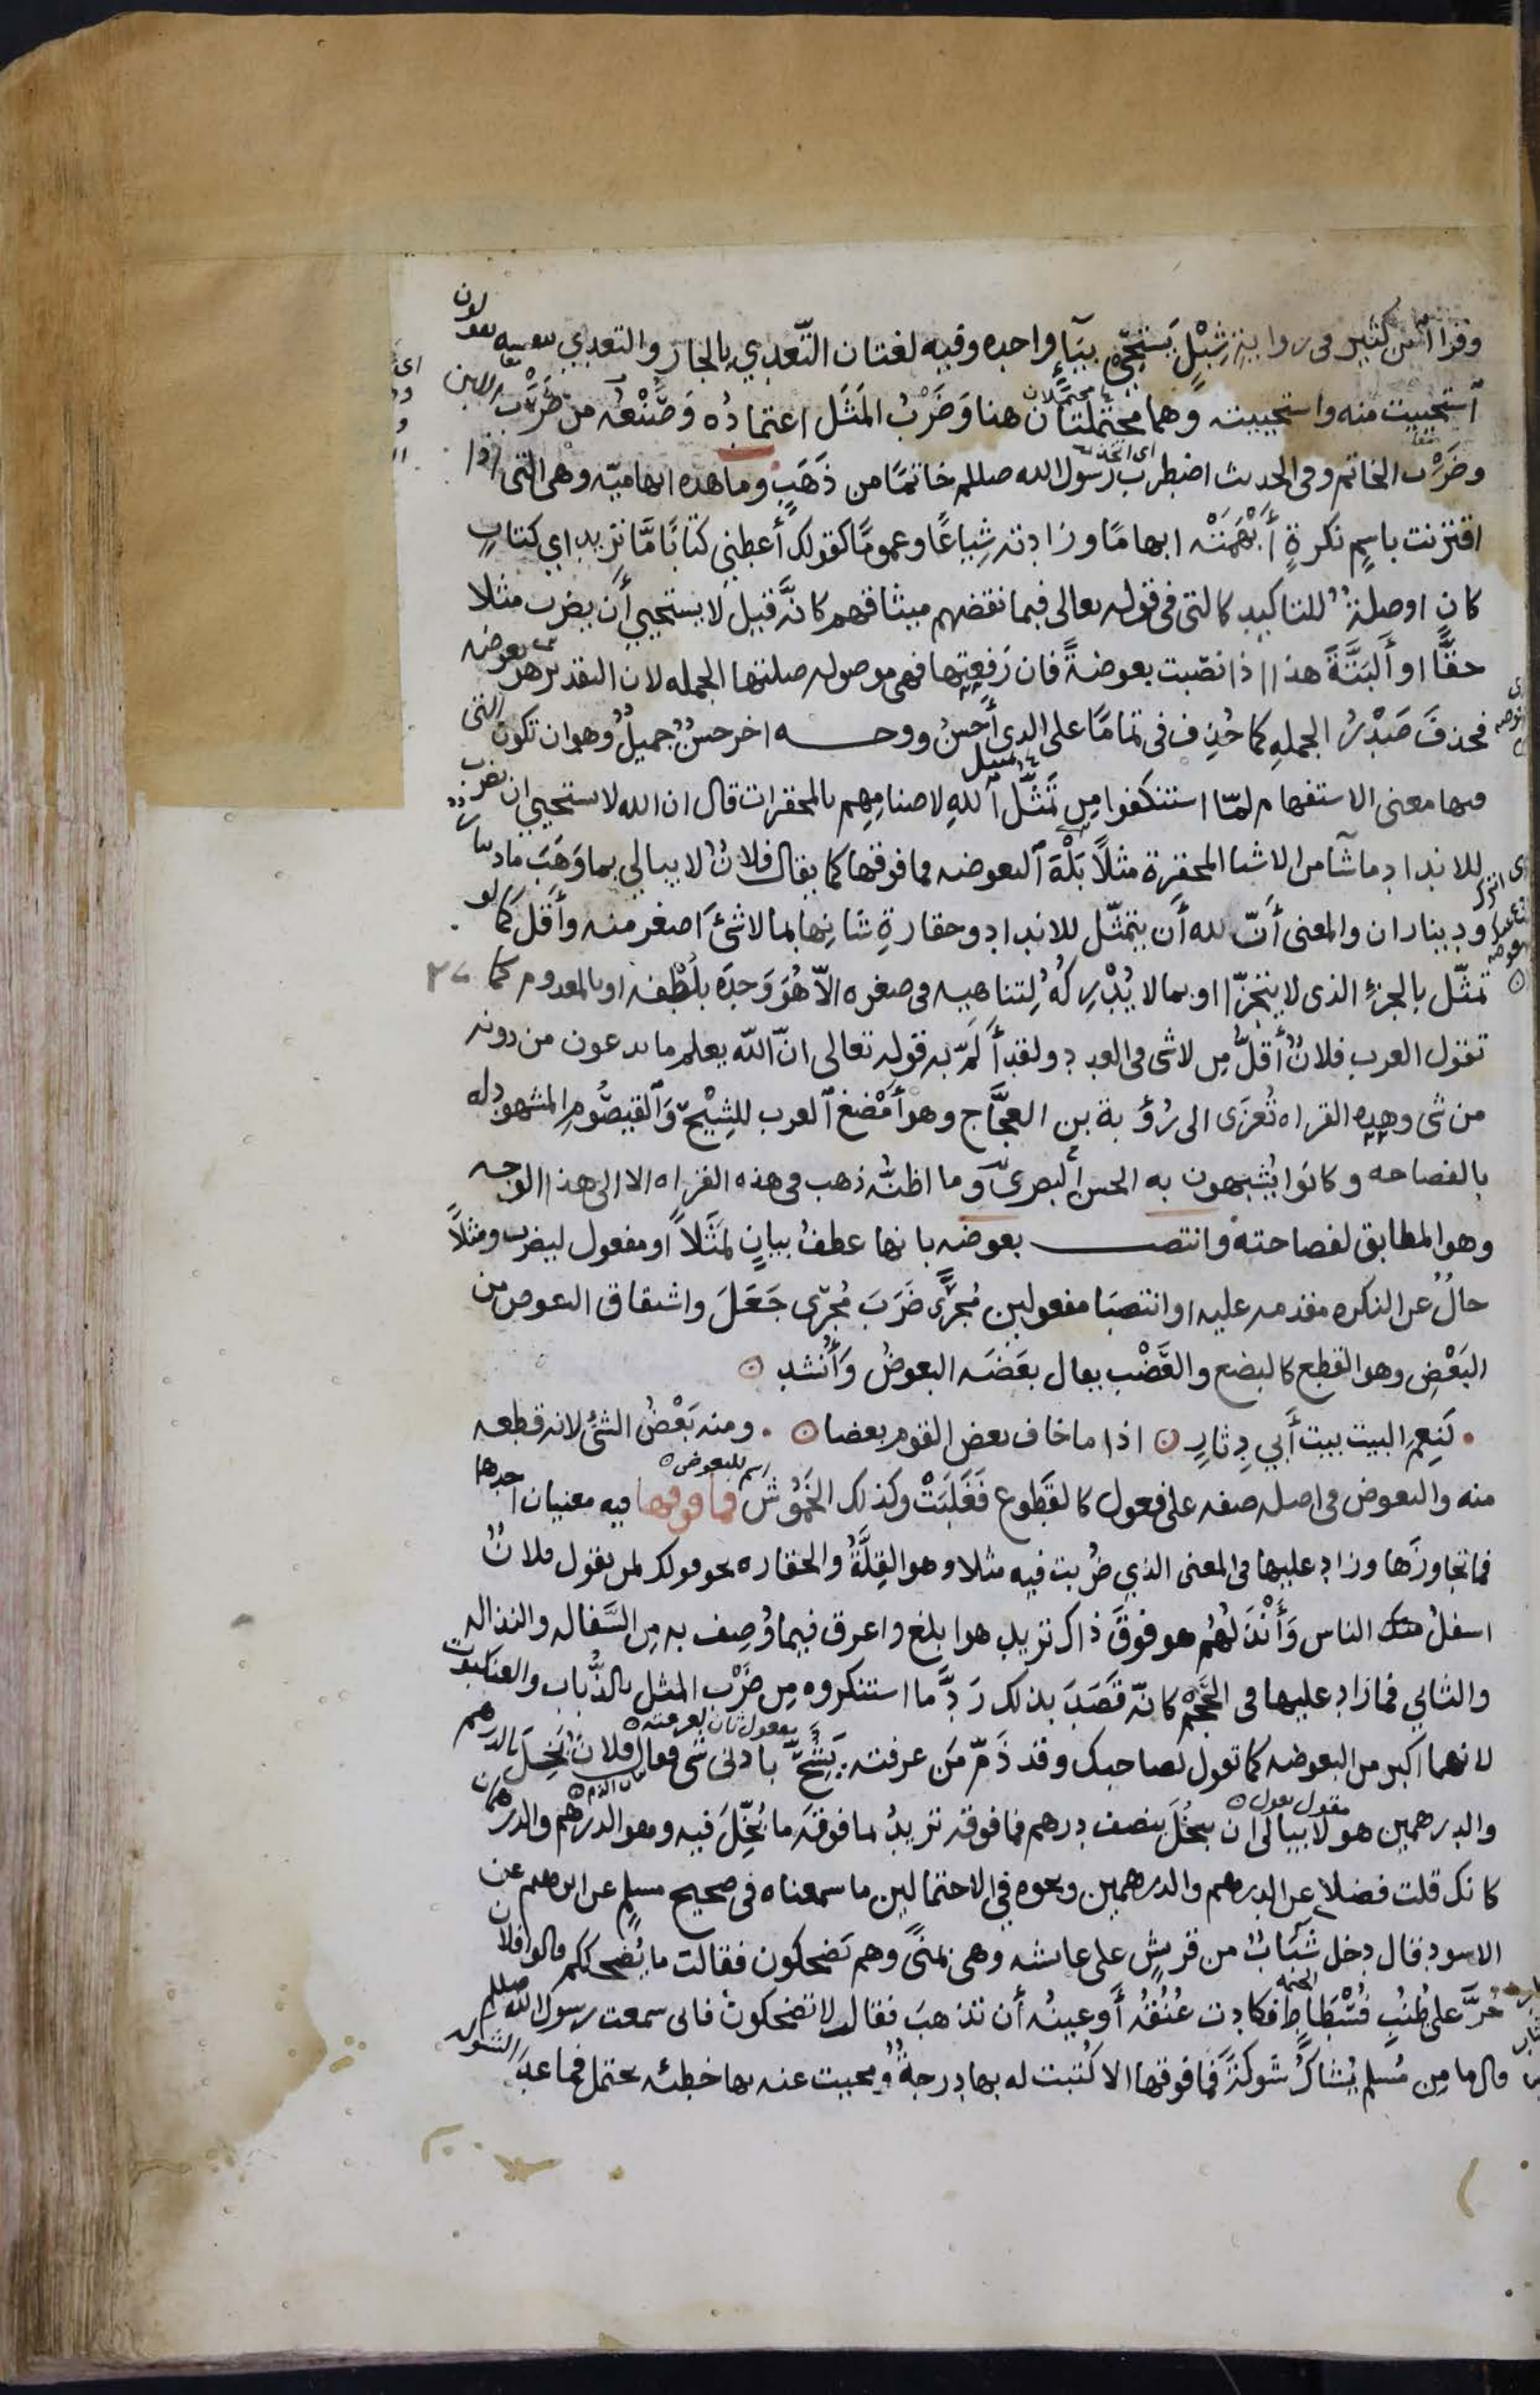 وقرا ابن كثير فى رواية شِبْلٍ يَستَحِي بيَآءٍ واحده وفيه لغتان التّعدي بالجار والتعدي بنفسه يقولون
استحييت منه واستحييته وهما محتملتان هنا وَضَرْبُ المَثَل اعتمادُه وَصُنْعُه من ضَرْب اللبن
وضَرْب الخاتم وفى الحديث اضطرب رسول الله صللم خاتمًا من ذَهَبٍ وما هذه ابهاميّه وهى التى اذا
اقترنت باسمٍ نكرةٍ أَبْهَمَتْه ابهامًا وزادته شِياعًا وعمومًا كقولك أعطِنِي كتابًا مَّا تريد اى كتابٍ
كان او صلةٌ للتاكيد كالتى فى قوله تعالى فبما نقضهم ميثاقهم كانَّه قيل لا يستحيي أَن يضرب مثلا
حقًّا او ألبَتَّةَ هذا اذا نصَبت بعوضةً فان رَفعتَها فهى موصوله صلتها الجمله لان التقدير هو بعوضه
فحذفَ صَدْرُ الجملهِ كما حُذِف فى تمامًا على الذى أحسنُ ووجــه اخر حسنٌ جميلٌ وهو ان تكون التى
فيها معنى الاستفهام لمّا استنكفوا مِن تَمَثُّل اللهِ لاصنامِهِم بالمحقرات قال ان الله لا يستحيي ان يضرب
للانداد ما شآ من الاشيا المحقرة مثلاً بَلْهَ البعوضه فما فوقها كما يقال فلانٌ لا يبالي بما وَهَبَ ما دينار
ودیناران والمعنى أَنّ لله أَن يتمثّل للانداد وحقارةِ شانِها بما لا شئَ اَصغر منه وأَقل كما لو
تمثّل بالجزءِ الذى لا يتجزّا او بما لا يُدْرِكُهُ لِتناهيه فى صغره الاّ هُوَ وَحدَه بلُطْفه او بالمعدوم كما
تقول العرب فلانٌ أقلُّ مِن لا شى فى العدد ولقد أَلَمّ به قوله تعالى انّ الله يعلم ما يدعون من دونه
من شى وهذه القراه تُعزَى الى رُؤبة بن العجَّاج وهو أَمْضَغ العرب للشِيْحِ وَالقيصُومِ المشهود له
بالفصاحه وكانوا يُشَبهون به الحسن البصرىّ وَما اظنُّه ذهب فى هذه القراه الا الى هذا الوجه
وهو المطابق لفصاحته وانتصــب بعوضه بانها عطفُ بيانٍ لمَثَلاً او مفعول ليضرب ومثلاً
حالٌ عن النكره مقدمه عليه او انتصبَا مفعولين مُجرًى ضَرَبَ مُجرَى جَعَلَ واشتقاق البعوض من
البَعْضِ وهو القطع كالبضع والعَضْب يقال بعَضَه البعوضُ وَأَنشد
لَنِعمَ البيت بيت أَبي دِثارِ اذا ما خاف بعض القوم بعضا ومنه بَعْضُ الشئ لانه قطعه
منه والبعوض فى اصله صفه على فعول كالقَطوع فَغَلَبَتْ وكذلك الخَمُوْش فما فوقها فيه معنيان احدها
فما تجاوزَها وزاد عليها فى المعنى الذي ضُربت فيه مثلا وهو القِلَّةُ والحقاره نحو قولك لمن يقول فلانٌ
اسفلُ الناس وَأَنْذَلُهُم هو فوقَ ذاك تريد هو ابلغ واعرق فيما وُصِف به مِن السَّفاله والنذاله
والثاني فما زاد عليها فى الحَجْم كانّه قَصَدَ بذلك رَدَّ ما استنكروه مِن ضَرْب المثل بالذُّباب والعنكبوت
لانهما اكبر من البعوضه كما تقول لصاحبك وقد ذَمّ مَن عرفته يَشُحُّ بادنى شى فقال فلانٌ بَخِلَ بالدرهم
والدرهمين هو لا يبالى ان يبخُلَ بنصف درهم فما فوقه تريدُ بما فوقَه ما بُخِّلَ فيه وهو الدرهم والدرهمان
كانك قلت فضلا عن الدرهم والدرهمين ونحوه في الاحتمالين ما سمعناه فى صحيح مسلمٍ عن ابرهيم عن
الاسود قال دخل شَبَابٌ من قريشٍ على عايشه وهى بمنًى وهم يَضحكون فقالت ما يُضحككم قالوا فلان
خَرَّ على طُنُبِ فُسْطَاطٍ فكادت عُنُقُه أَو عينُه أَن تذهبَ فقالت لا تضحكون فانى سمعت رسول الله صللم
قال ما مِن مُسلمٍ يُشاكُ شَوكةً فما فوقها الا كُتبت له بها درجةٌ ومحيت عنه بها خطيئه يحتمل فما عدا الشوكه
محتملان
اسم للبعوض
مفعول ثان لعرفته
مقول يقول